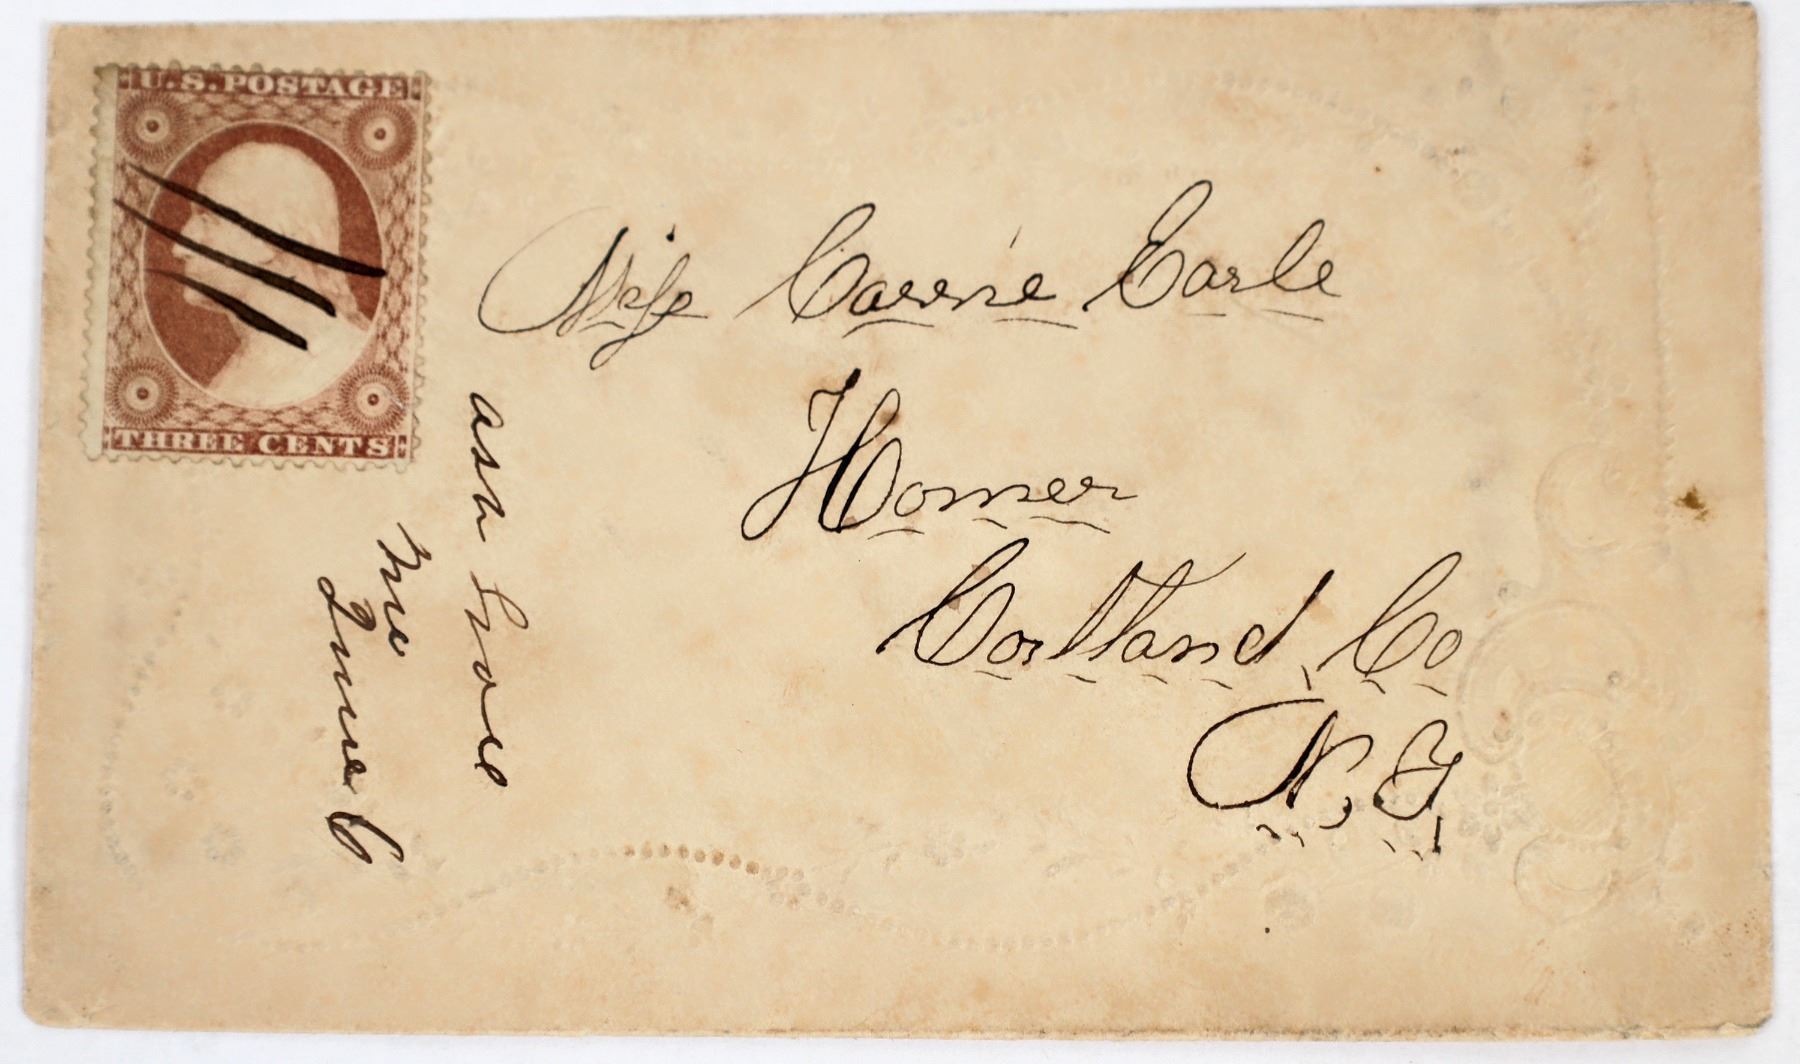 U.S. POSTAGE
THREE CENTS
Miss Carrie Earle
Homer
Cortland, Co
N, Y,
ash Grove
June 6